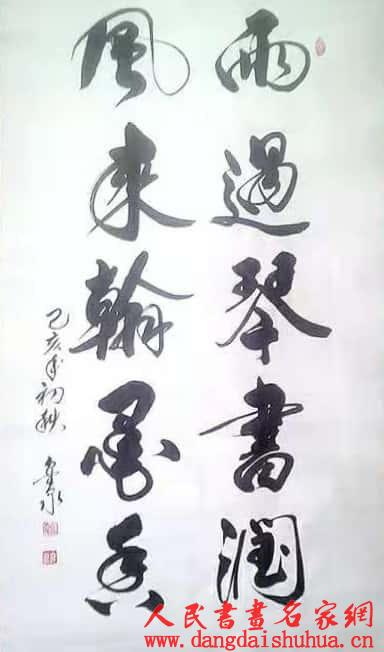 雨過琴書潤
風来翰墨香
己亥年初秋
人民書畫名家網
www.dangdaishuhua.cn